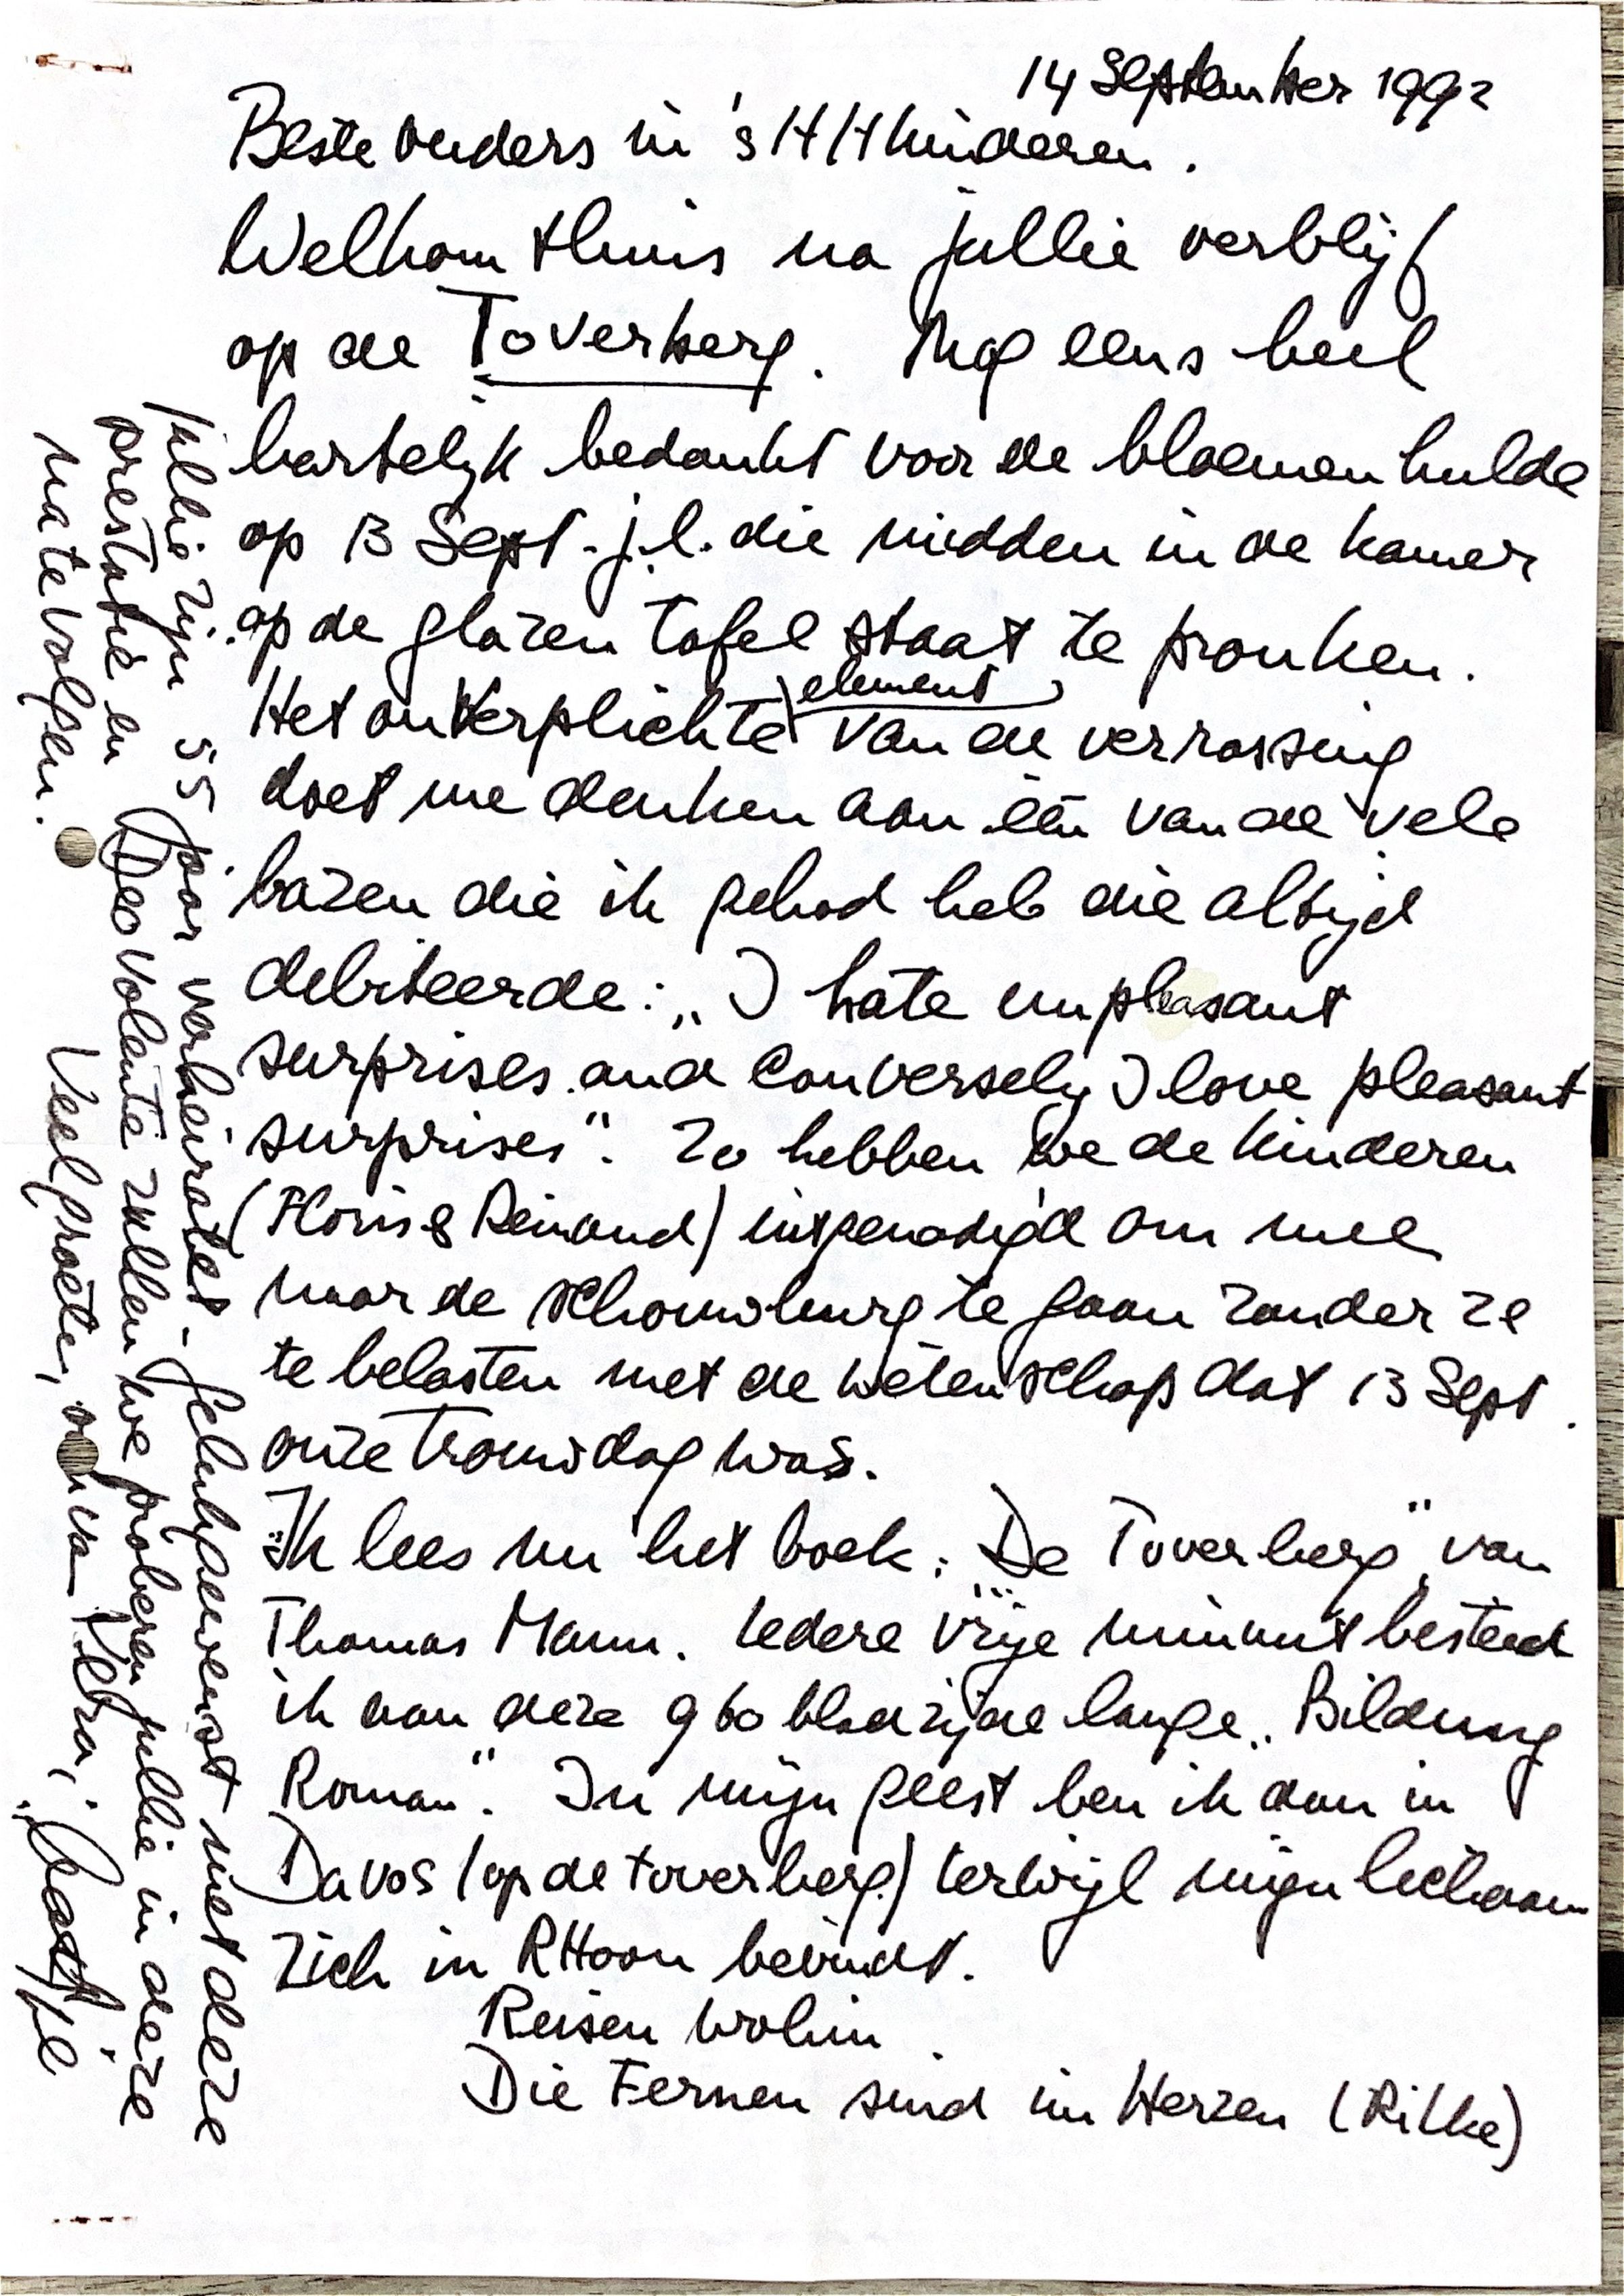 14 September 1992
Beste ouders in 's H H kinderen.
Welkom thuis na jullie verblijf
op de Toverberg. Nog eens heel
hartelijk bedankt voor de bloemenhulde
op 13 Sept. j.l. die midden in de kamer
op de glazen tafel staat te pronken.
Het onverplichte element van de verrassing
doet me denken aan één van de vele
bazen die ik gehad heb die altijd
debiteerde: „I hate unpleasant
surprises and conversely I love pleasant
surprises". Zo hebben we de kinderen
(Floris & Reinoud) uitgenodigd om mee
naar de schouwburg te gaan zonder ze
te belasten met de wetenschap dat 13 Sept.
onze trouwdag was.
Ik lees nu het boek: „De Toverberg" van
Thomas Mann. Iedere vrije minuut besteed
ik aan deze 960 bladzijde lange „Bildung
Roman". In mijn geest ben ik dan in
Davos (op de toverberg) terwijl mijn lichaam
zich in RHoon bevindt.
Reisen wohin
Die Fernen sind im Herzen (Rilke)
jullie zijn 55 jaar verheiratet - gelukgewenst met deze
prestatie en Deo volente zullen we proberen jullie in deze
mate volgen. Veel groeten, ook van Petra,